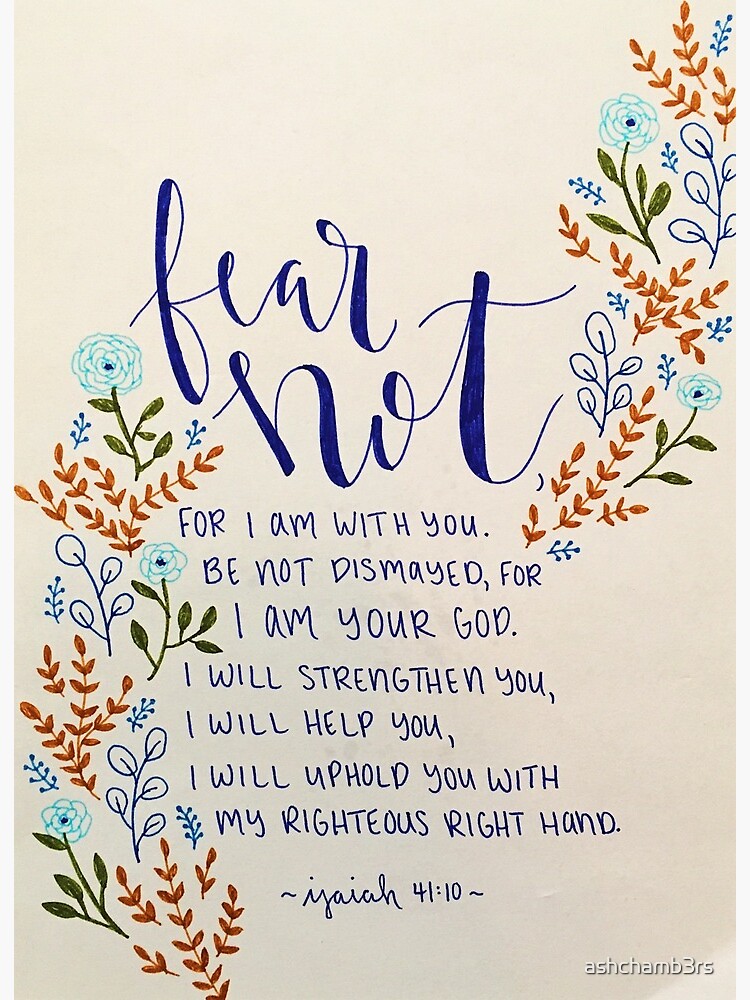 fear
not,
FOR I AM WITH YOU.
BE NOT DISMAYED, FOR
I AM YOUR GOD.
I WILL STRENGTHEN YOU,
I WILL HELP YOU,
I WILL UPHOLD YOU WITH
MY RIGHTEOUS RIGHT HAND.
~isaiah 41:10~
ashchamb3rs